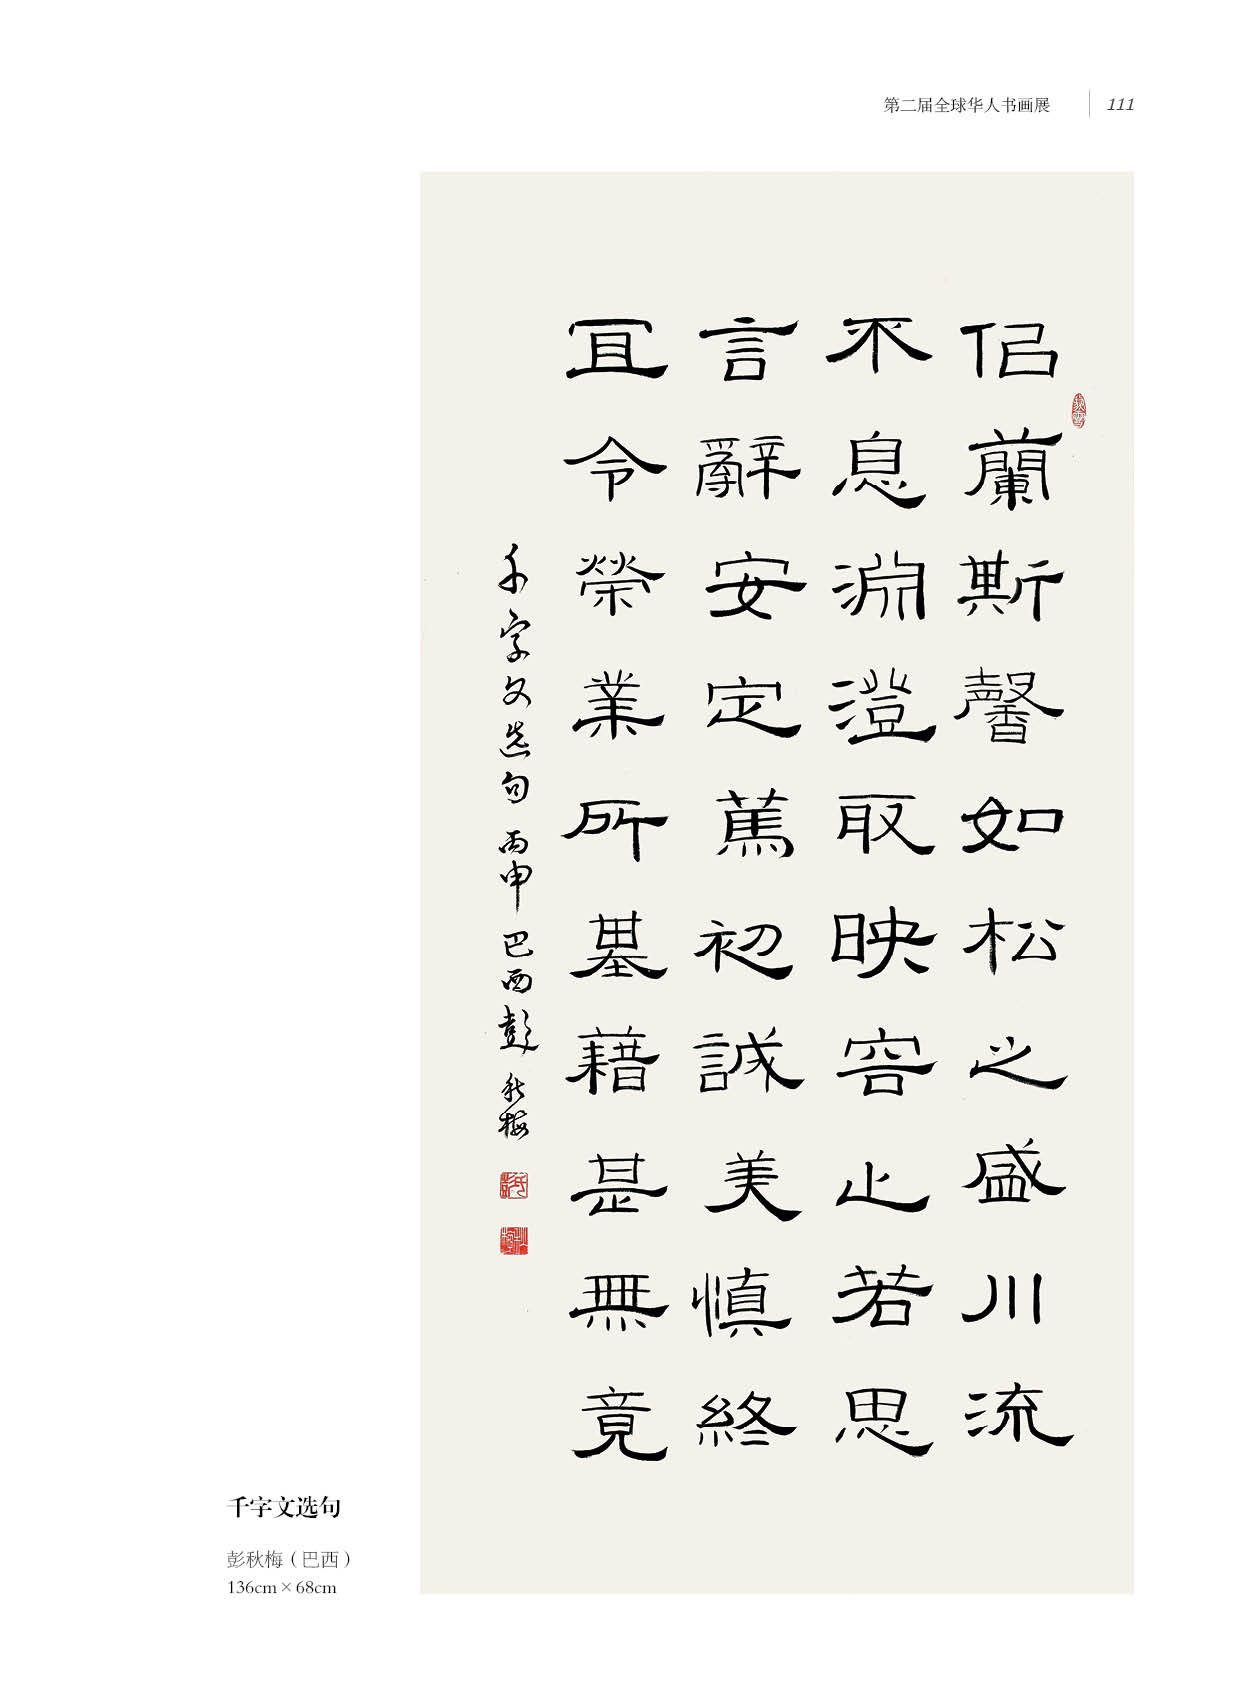 第二届全球华人书画展 111
佀蘭斯馨如松之盛川流
不息淵澄取映容止若思
言辭安定篤初誠美慎終
冝令榮業所基藉甚無竟
千字文选句 丙申 巴西 彭秋梅
千字文选句
彭秋梅（巴西）
136cm×68cm